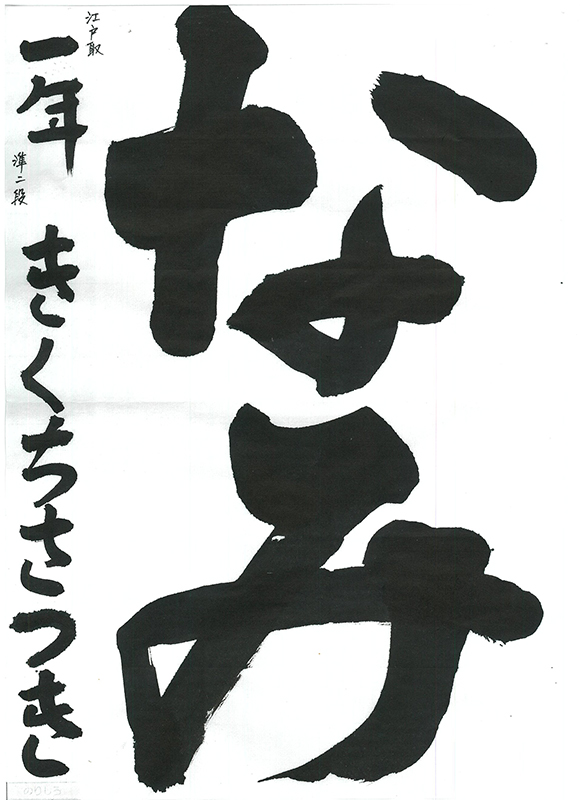 なみ
江戸取
一年 きくちさつき
準二段
のりしろ